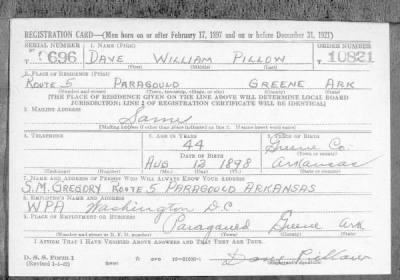 REGISTRATION CARD—(Men born on or after February 17, 1897 and on or before December 31, 1921)
SERIAL NUMBER 1. NAME (Print) ORDER NUMBER
T 696 DAVE WILLIAM PILLOW T 10821
(First) (Middle) (Last)
2. PLACE OF RESIDENCE (Print)
ROUTE 5 PARAGOULD GREENE ARK
(Number and street) (Town, township, village, or city) (County) (State)
[THE PLACE OF RESIDENCE GIVEN ON THE LINE ABOVE WILL DETERMINE LOCAL BOARD
JURISDICTION; LINE 2 OF REGISTRATION CERTIFICATE WILL BE IDENTICAL]
3. MAILING ADDRESS
Same
[Mailing address if other than place indicated on line 2. If same insert word same]
4. TELEPHONE 5. AGE IN YEARS 6. PLACE OF BIRTH
44 Greene Co.
DATE OF BIRTH (Town or county)
AUG 12 1898 Arkansas
(Exchange) (Number) (Mo.) (Day) (Yr.) (State or country)
7. NAME AND ADDRESS OF PERSON WHO WILL ALWAYS KNOW YOUR ADDRESS
S.M. GREGORY ROUTE 5 PARAGOULD ARKANSAS
8. EMPLOYER'S NAME AND ADDRESS
WPA Washington D.C
9. PLACE OF EMPLOYMENT OR BUSINESS
Paragould Greene Ark
(Number and street or R. F. D. number) (Town) (County) (State)
I AFFIRM THAT I HAVE VERIFIED ABOVE ANSWERS AND THAT THEY ARE TRUE.
D. S. S. Form 1
(Revised 1-1-42) GPO Dave Pillow